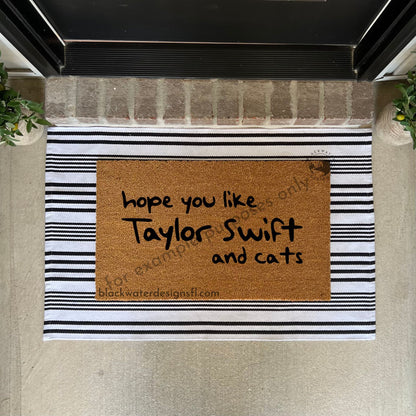 hope you like
Taylor Swift
and cats
for example purposes only
blackwaterdesignsfl.com